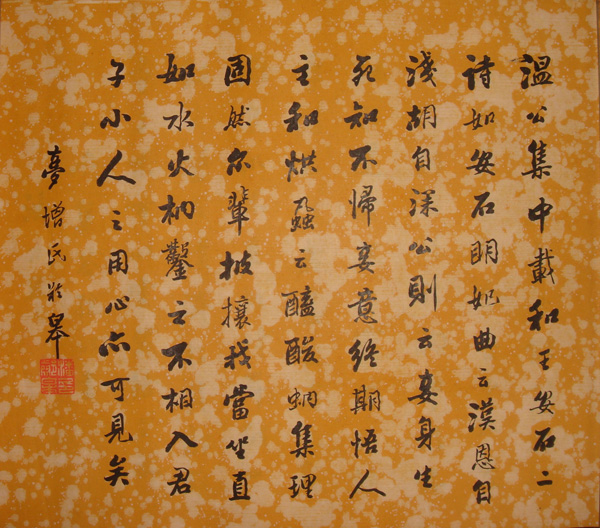 溫公集中載和王安石二
詩如安石明妃曲云漢恩自
淺胡自深公則云妾身生
死知不歸妾意終期悟人
主和烘蝨云醯酸蜹集理
固然尔輩披攘我當坐直
如水火枘鑿之不相入君
子小人之用心亦可見矣
夢增民於皋